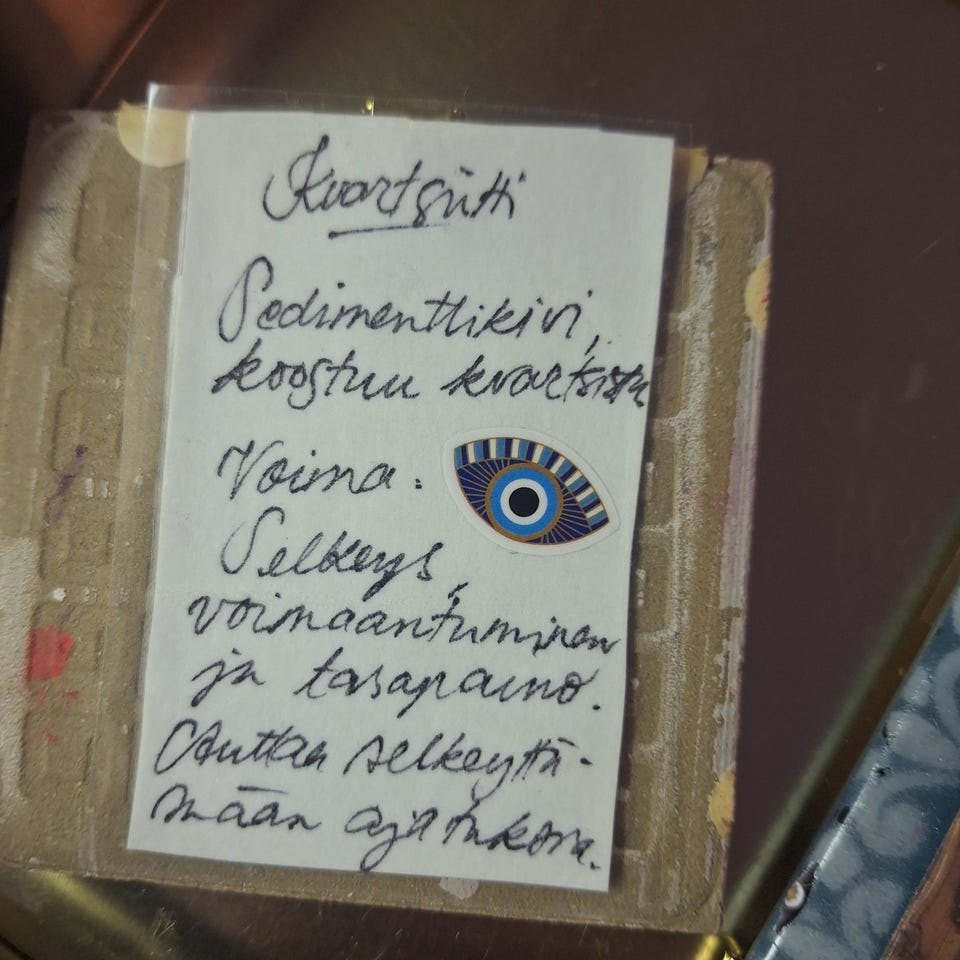 Kvartsiitti
Sedimenttikivi,
koostuu kvartsista
Voima:
Selkeys,
voimaantuminen
ja tasapaino.
Auttaa selkeyttä-
mään ajatuksia.